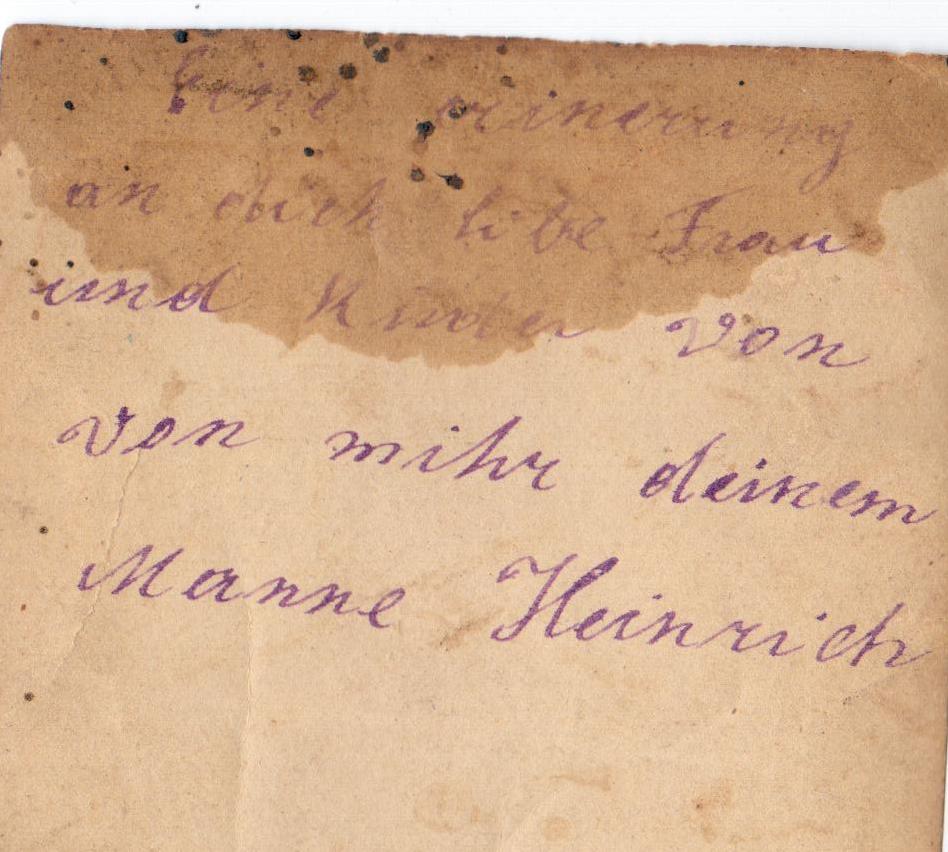 Eine erinerung
an dich libe Frau
und Kinder von
von mihr deinem
Manne Heinrich